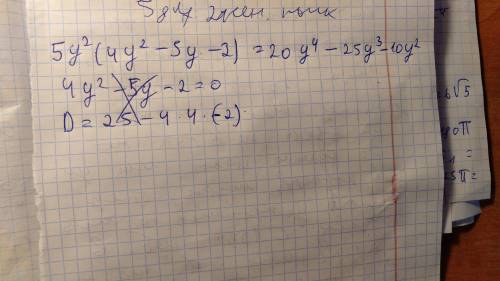 5y²(4y² - 5y - 2) = 20y⁴ - 25y³ - 10y²
4y² - 5y - 2 = 0
D = 25 - 4 · 4 · (-2)